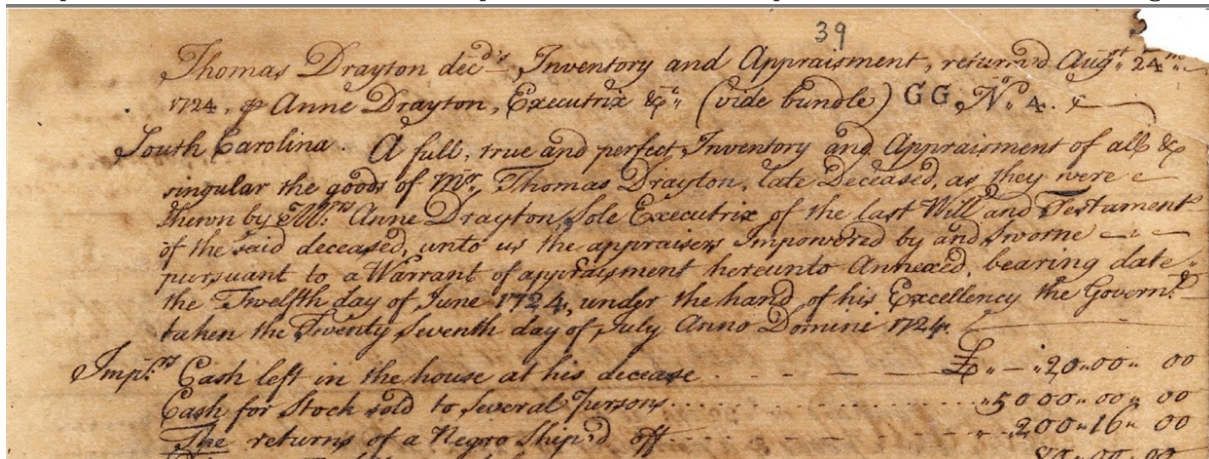 39
Thomas Drayton decd's Inventory and Appraisment, return'd Augst 24th
1724, ⅌ Anne Drayton, Executrix &c (vide bundle) GG, No 4.
South Carolina. A full, true and perfect Inventory and Appraisment of all &
singular the goods of Mr. Thomas Drayton, late Deceased, as they were
shewn by Mrs Anne Drayton, Sole Executrix of the last Will and Testament
of the said deceased, unto us the appraisers Impowered by and sworne
pursuant to a Warrant of appraisment hereunto Annexed, bearing date
the Twelfth day of June 1724, under the hand of his Excellency the Governr
taken the Twenty Seventh day of July Anno Domini 1724.
Imprs Cash left in the house at his decease £ 20 " 00 " 00
Cash for Stock sold to several persons 5000 " 00 " 00
The returns of a Negro Ship'd off 200 " 16 " 00